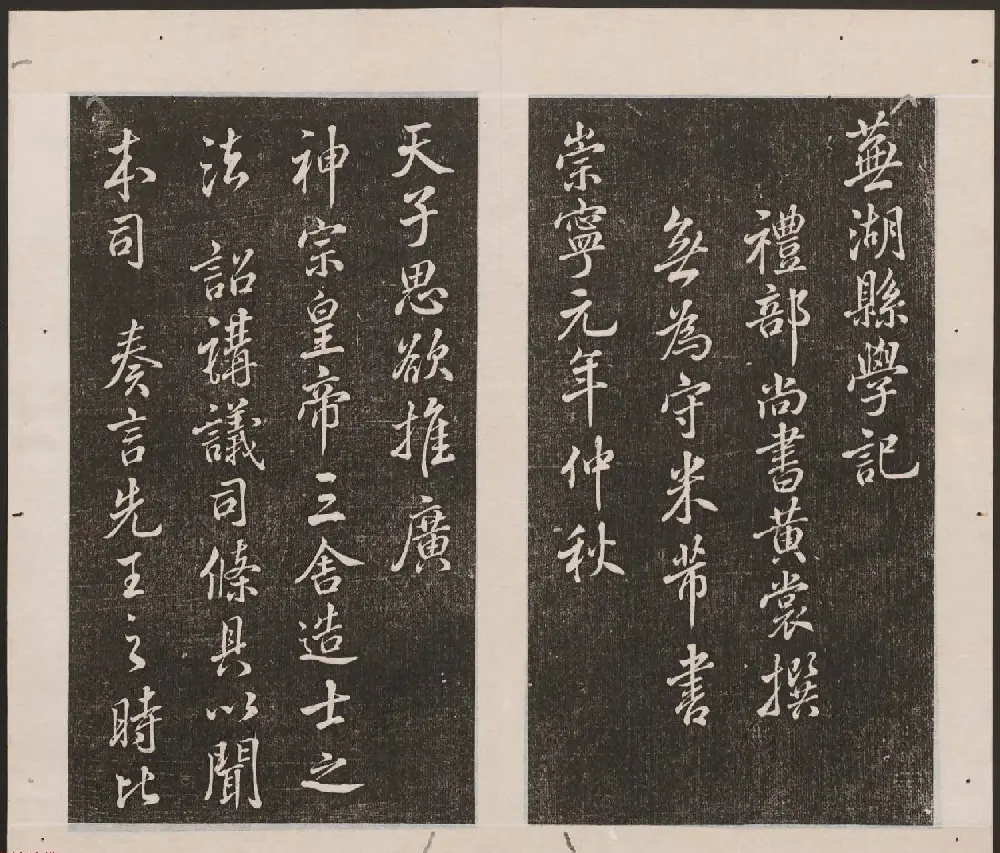 蕪湖縣學記
禮部尚書黃裳撰
無為守米芾書
崇寧元年仲秋
天子思欲推廣
神宗皇帝三舍造士之
法 詔講議司條具以聞
本司 奏言先王之時比